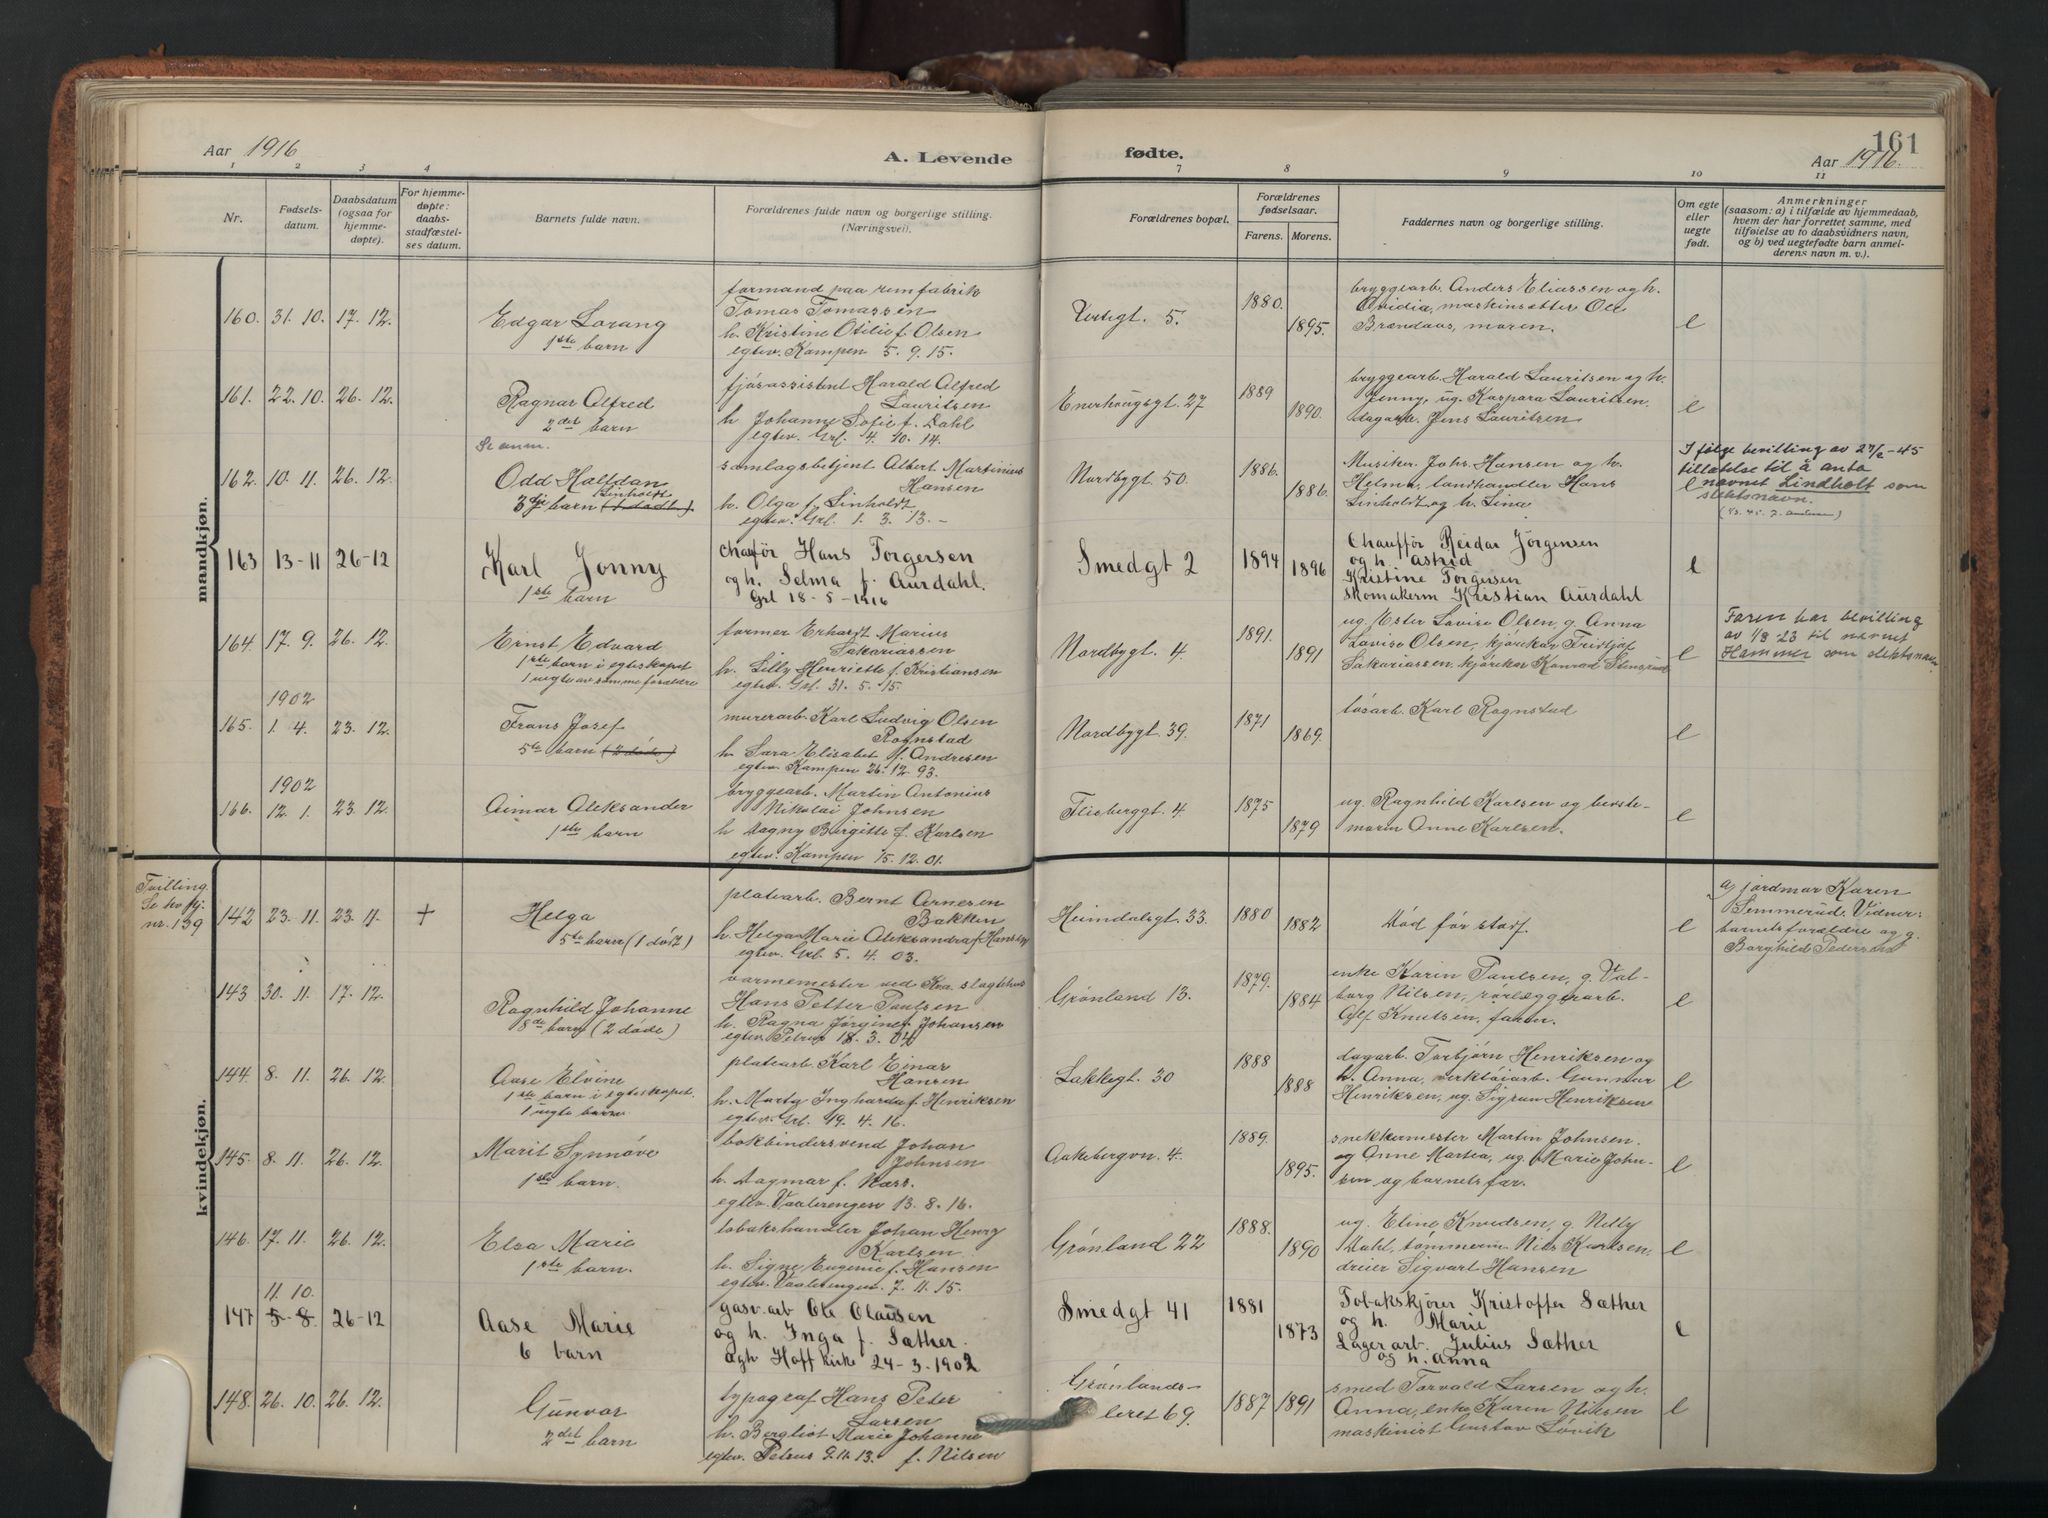 161
Aar 1916
A. Levende
fødte.
Aar 1916.
1 2 3 4 7 8 9 10 11
Nr.
Fødsels-
datum.
Daabsdatum
(ogsaa for
hjemme-
døpte).
For hjemme-
døpte:
daabs-
stadfæstel-
ses datum.
Barnets fulde navn.
Forældrenes fulde navn og borgerlige stilling.
(Næringsvei).
Forældrenes bopæl.
Forældrenes
fødselsaar.
Farens. Morens.
Faddernes navn og borgerlige stilling.
Om egte
eller
uegte
født.
Anmerkninger
(saasom: a) i tilfælde av hjemmedaab,
hvem der har forrettet samme, med
tilføielse av to daabsvidners navn,
og b) ved uegtefødte barn anmel-
derens navn m. v.).
mandkjøn.
160. 31. 10. 17. 12.
Edgar Lorang
1ste barn
formand paa remfabrik
Tomas Tomassen
h. Kristine Otilie f. Olsen
egtev. Kampen 5. 9. 15.
5.
1880.
1895.
bryggearb. Anders Eliassen og h.
Ovidia, maskinsætter Ole
Brændaas, moren.
e
161. 22. 10. 26. 12.
Ragnar Alfred
2det barn
fjøsassistent Harald Alfred
Lauritsen
h Johanne Sofie f. Dahl
egtev. Grl. 4. 10. 14.
Enerhougsgt. 27
1889
1890.
bryggearb. Harald Lauritsen og h.
Jenny, ug. Kaspara Lauritsen.
dagarb. Jens Lauritsen
e
Se anm.
162. 10. 11. 26. 12.
Odd Halfdan
Linholdt
3dje barn (1 dødt)
samlagsbetjent Albert Martinius
Hansen
h. Olga f. Linholdt
egtev. Grl. 1. 3. 13. -
Nordbygt. 50.
1886.
1886.
Musiker Johs. Hansen og h.
Helma, landhandler Hans
Linholdt og h. Lina.
e
I følge bevilling av 27/2-45
tillatelse til å anta
navnet Lindholt som
slektsnavn.
163 13-11 26-12
Karl Jonny
1ste barn
chaffør Hans Torgersen
og h. Selma f. Aurdahl.
Grl 18-5-1916
Smedgt 2
1894
1896
Chauffør Reidar Jörgensen
og h. Astrid
Kristine Torgersen
Skomakerm Kristian Aurdahl
e
164. 17. 9. 26. 12.
Ernst Edvard
1ste barn i egteskapet
1 uegte av samme forældre
former Erhardt Marius
Sakariassen
h. Lilly Henriette f. Kristiansen
egtev. Grl. 31. 5. 15.
Nordbygt. 4.
1891.
1891
ug. Ester Lovise Olsen, g. Anna
Lovise Olsen, kjørekar Fridtjof
Sakariassen, kjørekar Konrad
e
Faren har bevilling
av 1/8 23 til navnet
Hammer som slektsnavn
1902
165. 1. 4. 23. 12.
Frans Josef
5te barn (2 døde)
murerarb. Karl Ludvig Olsen
Rognstad
h. Sara Elisabet f. Andresen
egtev. Kampen 26. 12. 93.
Nordbygt. 39.
1871
1869.
løsarb. Karl Rognstad
e
1902
166. 12. 1. 23. 12.
Aimar Aleksander
1ste barn
bryggearb. Martin Antonius
Nikolai Johnsen
h Dagny Birgitte f. Karlsen
egtev. Kampen 15. 12. 01.
Flisberggt. 4.
1875
1879
ug. Ragnhild Karlsen og beste-
moren Anne Karlsen.
e
kvindekjøn.
Tvilling.
nr. 139
142 23. 11. 23. 11. +
Helga
5te barn (1 dødt)
platearb. Bernt Arnesen
Bakken
h. Helga Marie Aleksandra f. Hansen
egtev. Grl. 5. 4. 03.
Heimdalsgt. 33.
1880
1882
Død før stadf.
e
a) jordmor Karen
Semmerud. Vidner:
barnets forældre og g.
Borghild Pedersen
143 30. 11. 17. 12.
Ragnhild Johanne
8de barn (2 døde)
varmemester ved Kra. slagtehus
Hans Petter Paulsen
h. Ragna Jørgine f. Johansen
egtev. Petrus 18. 3. 04
Grønland 13.
1879.
1884
enke Karin Paulsen, g. Val-
borg Nilsen, rørlæggerarb.
Olf Knutsen, faren.
e
144. 8. 11. 26. 12.
Aase Elvine
1ste barn i egteskapet.
1 uegte barn
platearb Karl Einar
Hansen
h. Marty Ingharda f. Henriksen
egtev. Grl. 19. 4. 16.
Lakkegt. 30
1888
1888
dagarb. Torbjørn Henriksen og
h. Anna, verktøiarb. Gunnar
Henriksen, ug. Sigrun Henriksen
e
145. 8. 11. 26. 12.
Marit Synnöve
1ste barn.
bokbindersvend Johan
Johnsen
h. Dagmar f. Næss.
egtev. Vaalerengen 13. 8. 16.
Aakebergvn. 4.
1889.
1895.
snekkermester Martin Johnsen.
og Anne Martea, ug. Marie John-
sen og barnets far.
e
146. 17. 11. 26. 12.
Elsa Marie
1ste barn.
tobakshandler Johan Henry
Karlsen.
h. Signe Eugenie f. Hansen
egtev. Vaalerengen 7. 11. 15.
Grønland 22
1888.
1890
ug. Eline Knudsen, g. Nelly
Dahl, tømmerm. Nils Karlsen,
dreier Sigvart Hansen
e
11. 10.
147 5-8. 26-12
Aase Marie
6 barn
gasv.arb Ole Olausen
og h. Inga f. Sæther.
Hoff kirke 24-3-1902
Smedgt 41
1881
1873
Tobakskjører Kristoffer Sæther
og h. Marie
Lagerarb. Julius Sæther
og h. Anna
e
148. 26. 10. 26. 12.
Gunvor
2det barn
typograf Hans Peter
Larsen
h. Bergliot Marie Johanne
egtev. Petrus 9. 11. 13. f. Nilsen
Grønlands-
leret 69.
1887 1891
smed Torvald Larsen og h.
Anna, enke Karen Nilsen
maskinist Gustav Løvik
e